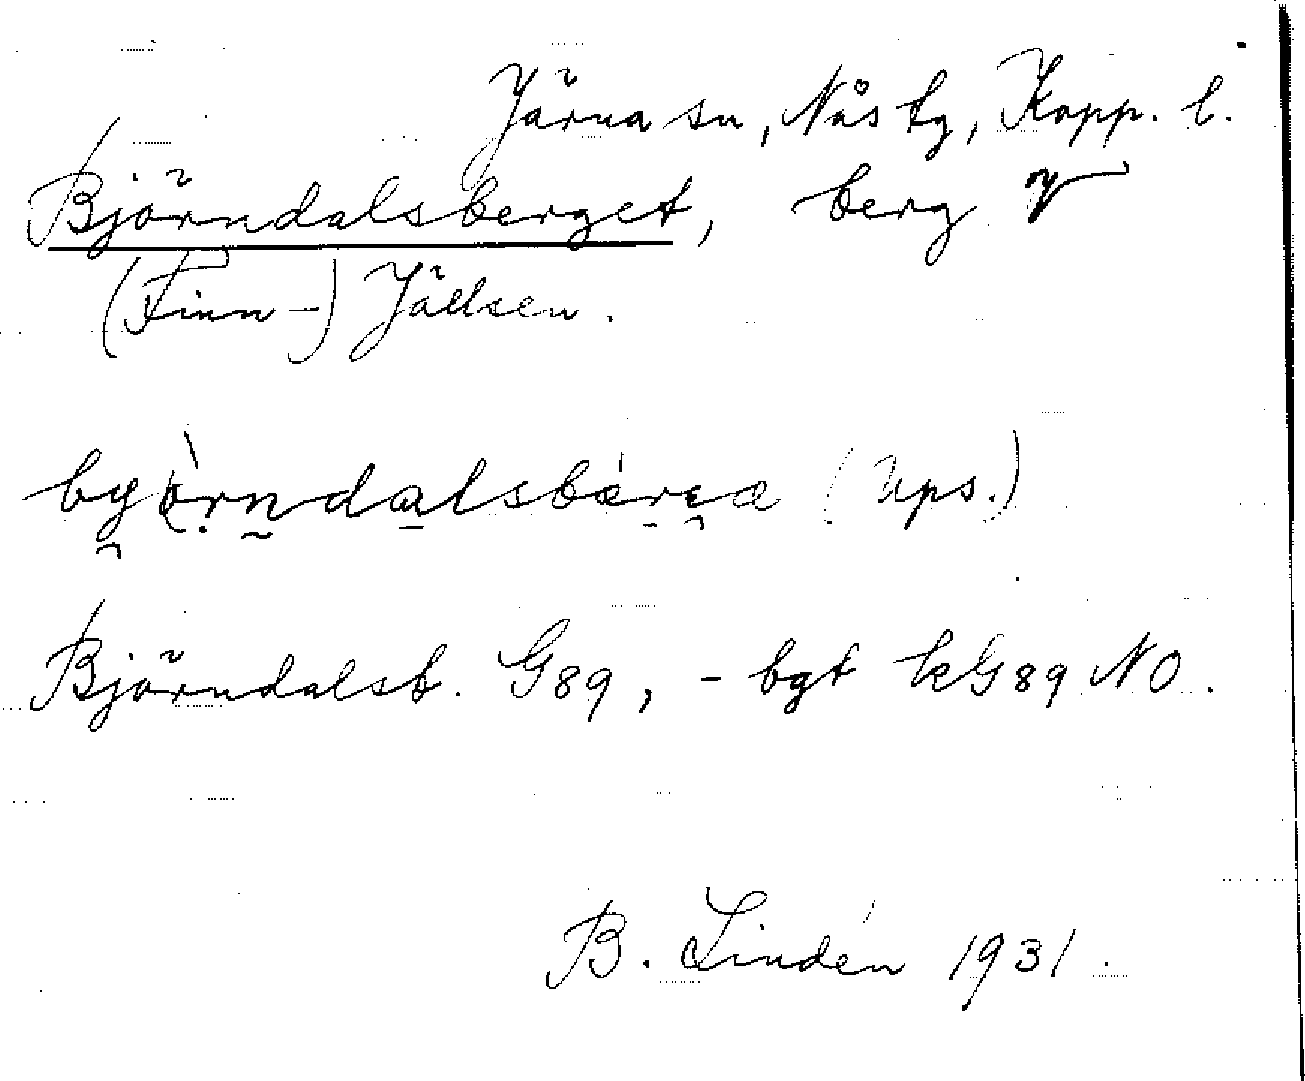 Järna sn, Nås tg, Kopp. l.
Björndalsberget, berg V
(Finn-) Jällsen.
bjòrndalsbárja (Ups.)
Björndalsb. G89, - bgt kG89 NO.
B. Lindén 1931.